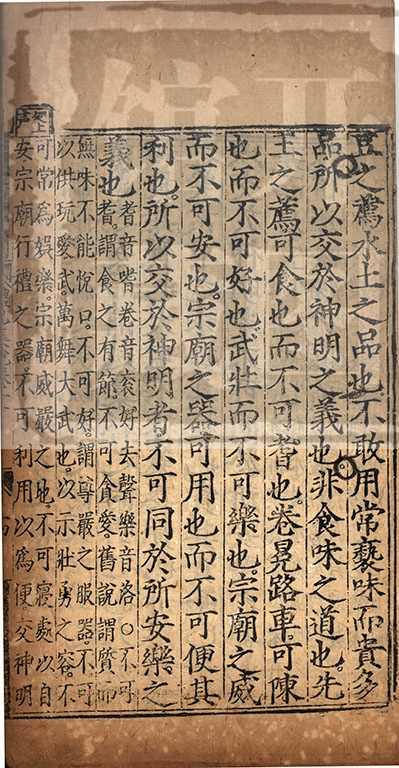 豆之薦水土之品也不敢用常褻味而貴多
品所以交於神明之義也非食味之道也先
王之薦可食也而不可耆也卷冕路車可陳
也而不可好也武壯而不可樂也宗廟之威
而不可安也宗廟之器可用也而不可便其
利也所以交於神明者不可同於所安樂之
義也
耆音嗜卷音衮好去聲樂音洛○不可
耆謂食之有節不可貪愛舊說謂質而
無味不能悅口不可好謂尊嚴之服器不可
以供玩愛武萬舞大武也以示壯勇之容不
可常爲娛樂宗廟威嚴之地不可寢處以自
安宗廟行禮之器不可利用以爲便交神明